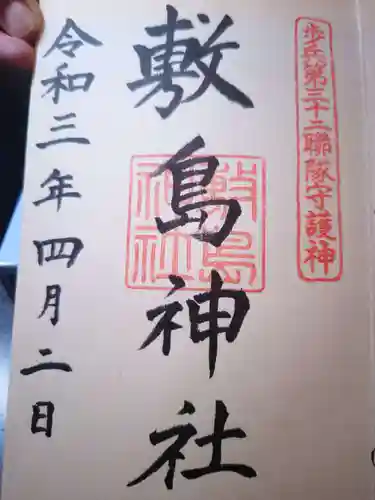 歩兵第三十二聯隊守護神
敷島神社
敷島
神社
令和三年四月二日